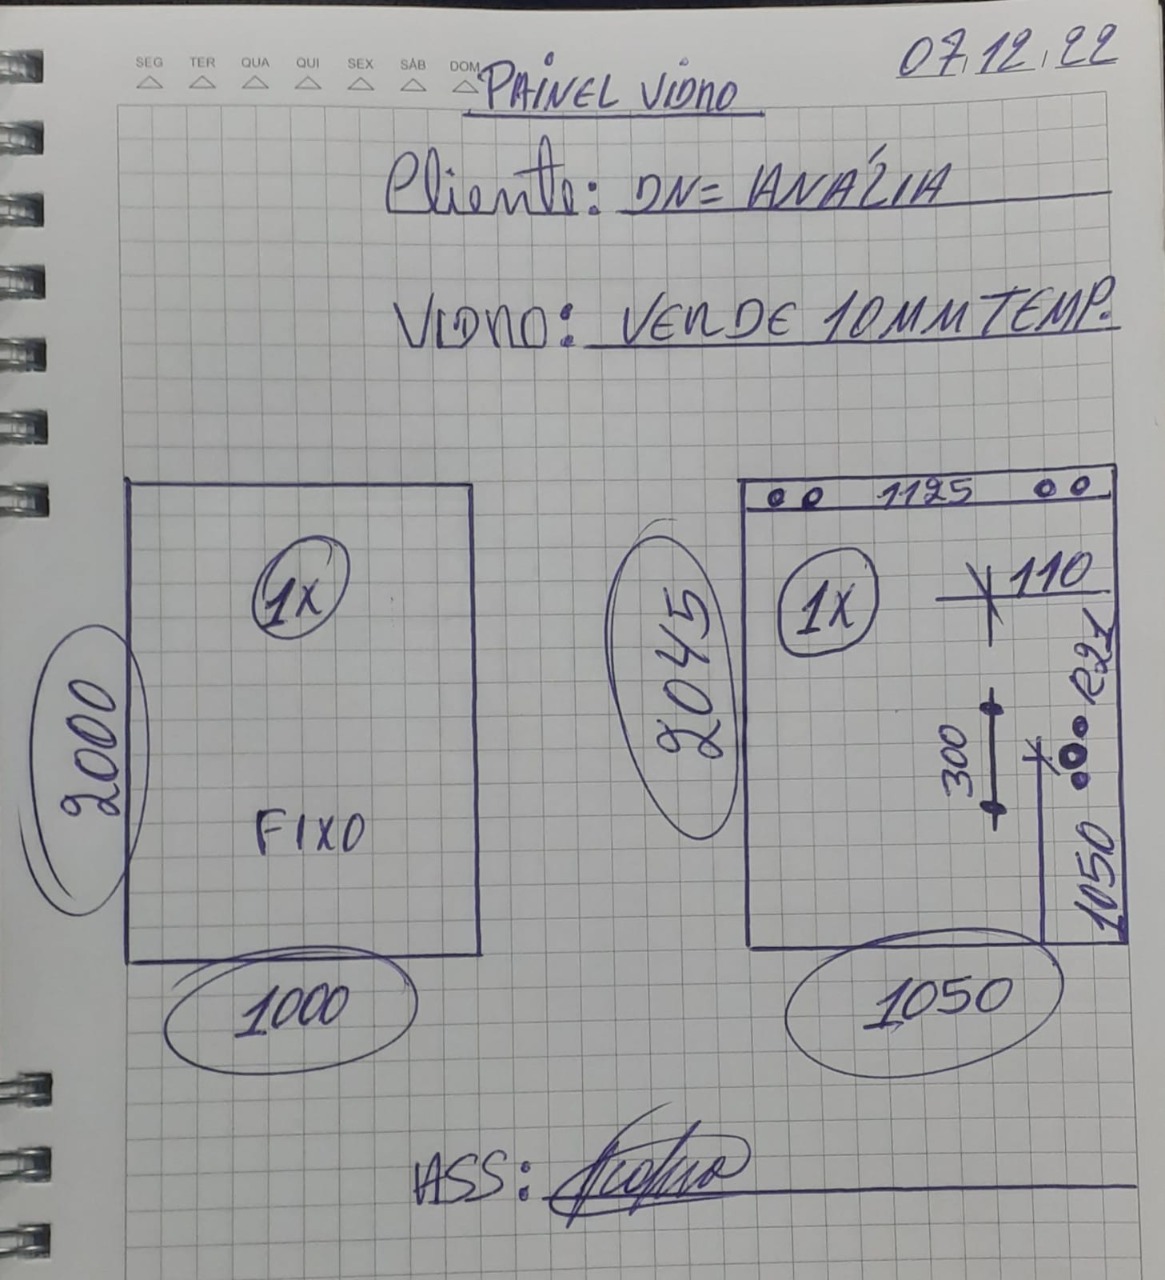 07.12.22
SEG TER QUA QUI SEX SÁB DOM
PAINEL VIDRO
Cliente: DNª ANÁLIA
VIDRO: VERDE 10MM TEMP.
1125
1X
1X
110
R21
2045
2000
300
FIXO
1050
1000
1050
ASS: